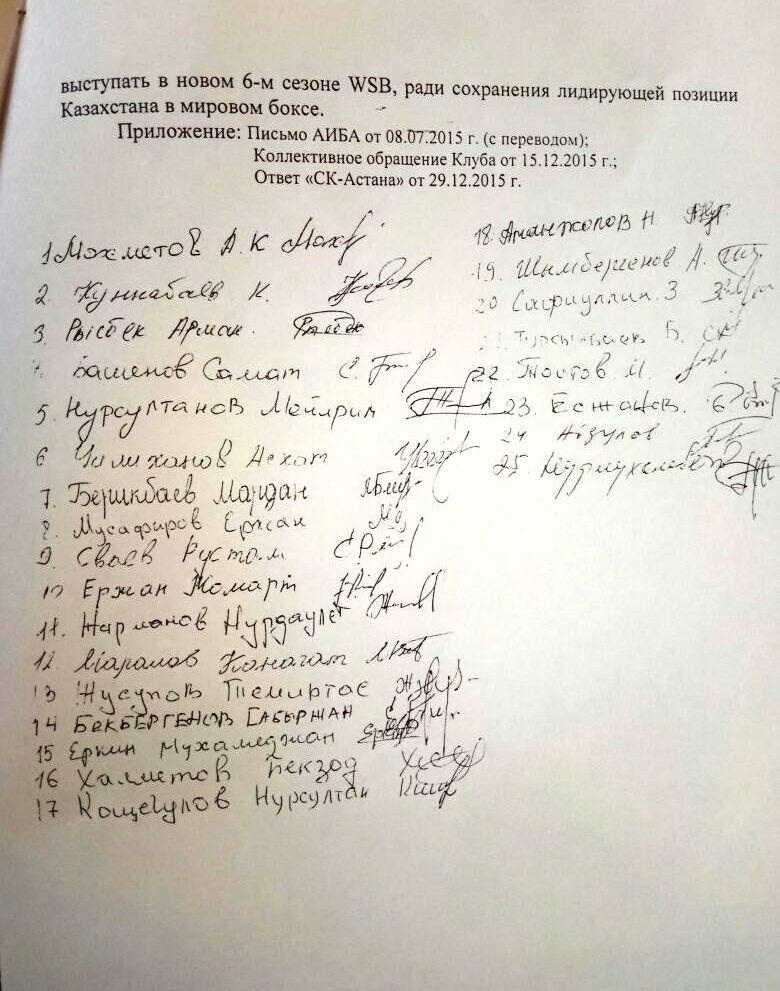 выступать в новом 6-м сезоне WSB, ради сохранения лидирующей позиции
Казахстана в мировом боксе.
Приложение: Письмо АИБА от 08.07.2015 г. (с переводом);
Коллективное обращение Клуба от 15.12.2015 г.;
Ответ «СК-Астана» от 29.12.2015 г.
1 Мохметов А.К
2 Куннабаев К.
3. Рысбек Арман.
4. Башенов Самат
5 Нурсултанов Мейирим
6 Чилиханов Асхат
7. Бершкбаев Мардан
8. Мусафиров Ержан
9 Сваев Рустам
10 Ержан Жомарт
11. Нарманов Нурдаулет
12 Канагат
13 Жусупов Темиртас
14 БЕКБЕРГЕНОВ ГАБЫРЖАН
15 Еркин Мухамеджан
16 Халметов Бекзод
17 Кощегулов Нурсултан
18. Аманжолов Н
19. Шымбергенов А.
20 Сафиуллин. З
21 Б.
22. Тоитов М.
23. Есжанов.
24
25.